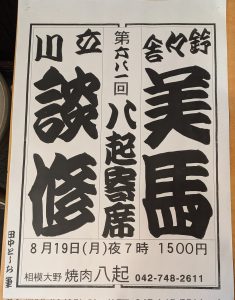 鈴々舎
美馬
第六八一回
八起寄席
立川
談修
8月19日(月)夜7時 1500円
相模大野 焼肉八起 042-748-2611
田中
筆